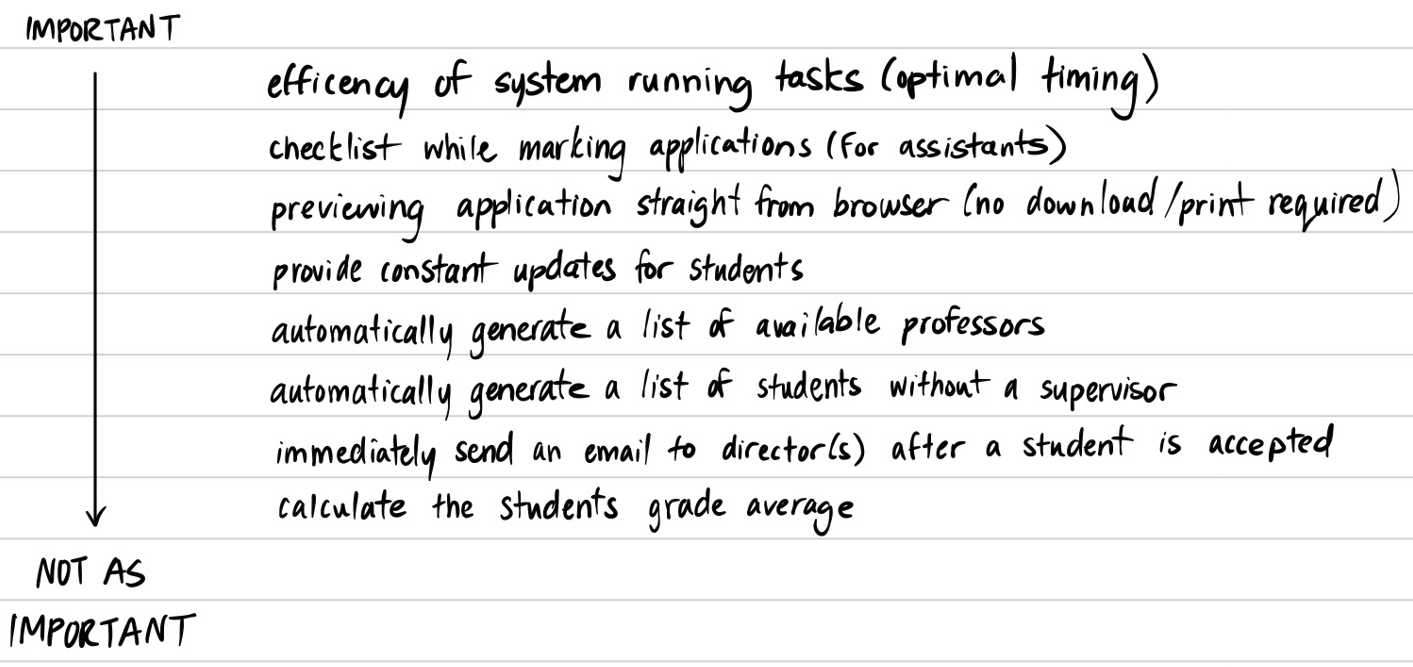 IMPORTANT
efficency of system running tasks (optimal timing)
checklist while marking applications (for assistants)
previewing application straight from browser (no download/print required)
provide constant updates for students
automatically generate a list of available professors
automatically generate a list of students without a supervisor
immediately send an email to director(s) after a student is accepted
calculate the students grade average
NOT AS
IMPORTANT